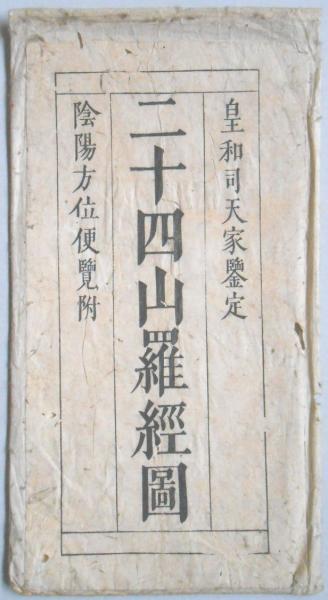 皇和司天家鑒定
二十四山羅經圖
陰陽方位便覽附